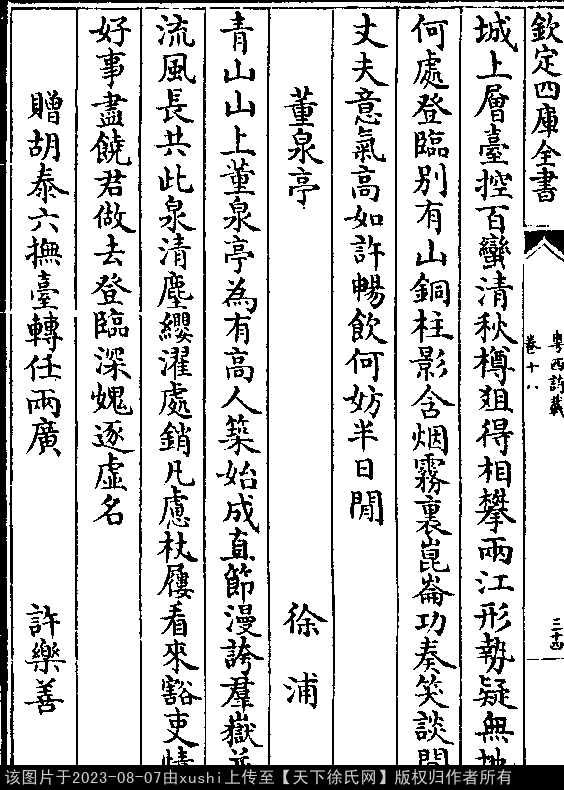 欽定四庫全書
粵西詩載
卷十八
三十四
城上層臺控百蠻清秋樽俎得相攀兩江形勢疑無地
何處登臨別有山銅柱影含烟霧裏崑崙功奏笑談間
丈夫意氣高如許暢飲何妨半日閒
董泉亭 徐浦
青山山上董泉亭為有高人築始成直節漫誇羣嶽並
流風長共此泉清塵纓濯處銷凡慮杖屨看來豁吏情
好事盡饒君做去登臨深媿逐虛名
贈胡泰六撫臺轉任兩廣 許樂善
该图片于2023-08-07由xushi上传至【天下徐氏网】版权归作者所有